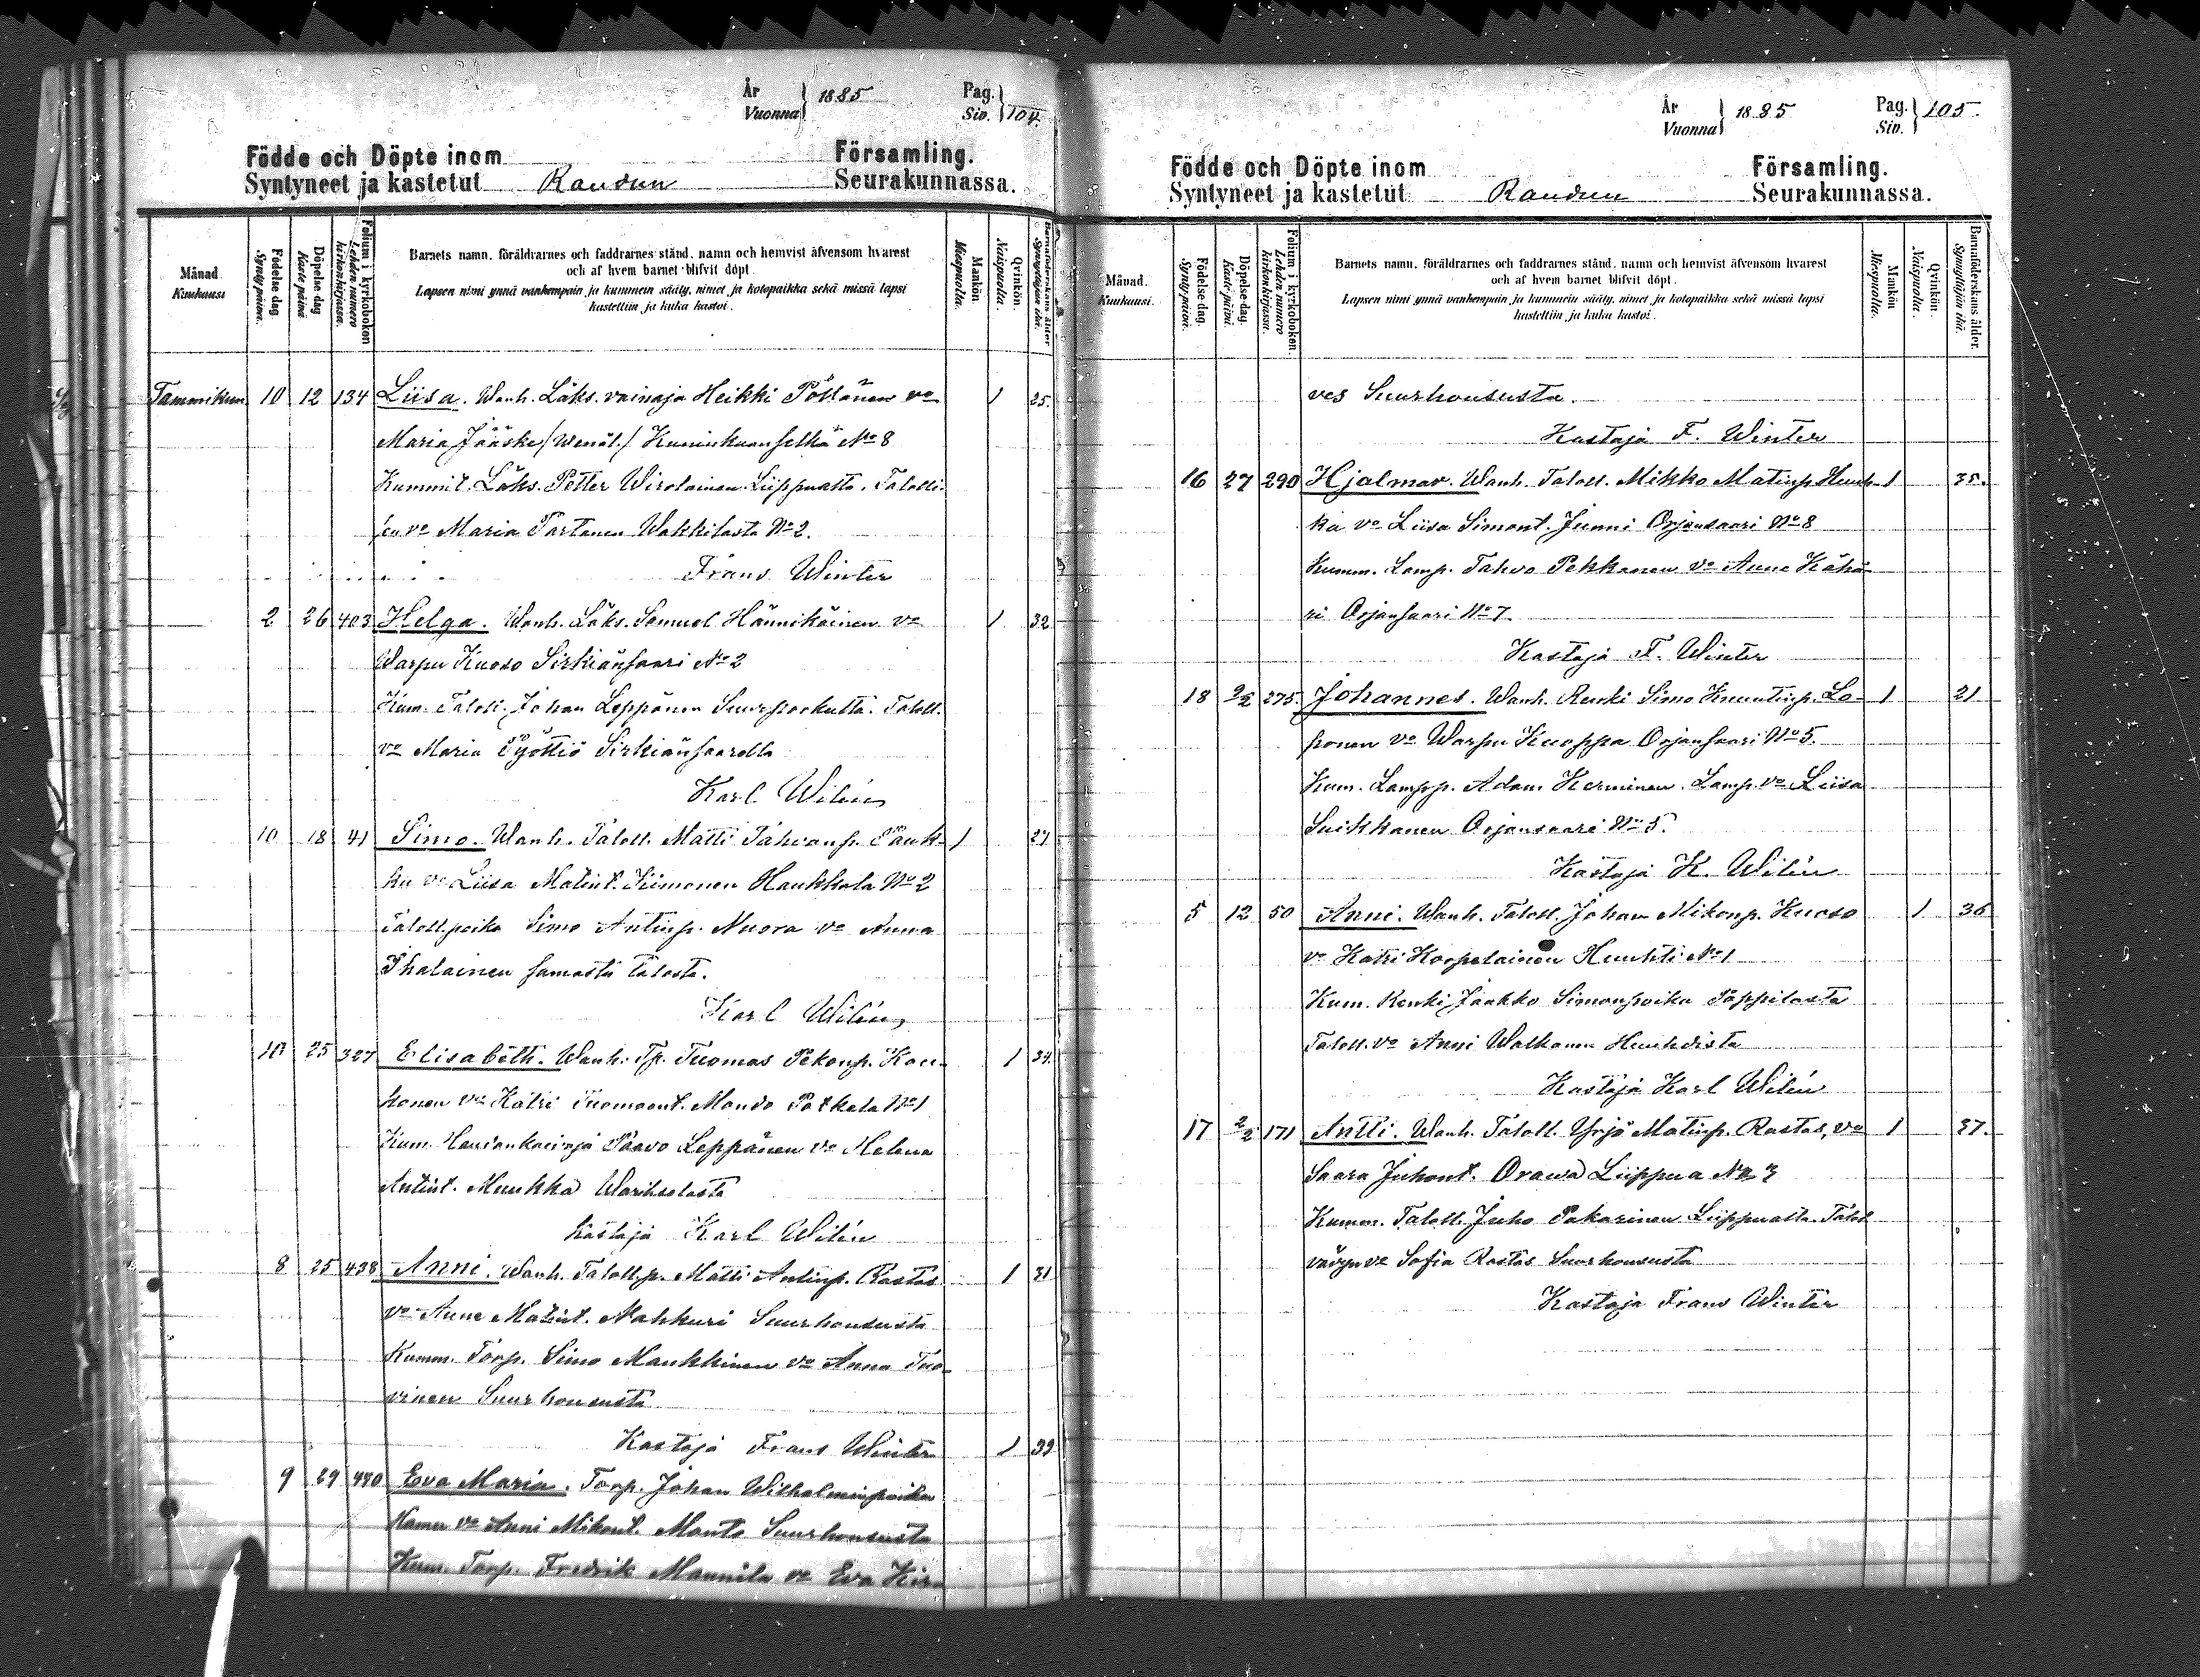 År
Vuonna } 1885
Pag.
Siv. } 104.
Födde och Döpte inom Församling.
Syntyneet ja kastetut Raudun Seurakunnassa.
Månad
Kuukausi
Födelse dag
Synty päivä.
Döpelse dag
Kaste-päivä
Folium i kyrkoboken
Lehden numero kirkonkirjassa.
Barnets namn, föräldrarnes och faddrarnes stånd, namn och hemvist äfvensom hvarest
och af hvem barnet blifvit döpt
Lapsen nimi ynnä vanhempain ja kummein sääty, nimet ja kotopaikka sekä missä lapsi
kastettiin ja kuka kastoi.
Mankön
Miespuolta.
Qvinkön.
Naispuolta.
Barnaföderskans ålder
Synnyttäjän ikä.
Tammikuu 10 12 134 Liisa. Wanh. Läks. vainaja Heikki Pöllänen vo 1 25.
Maria Jääske /Wenäl./ Kuninkaanselkä No 8
Kummit. Läks. Petter Wirolainen Liippualta. Talolli-
sen vo Maria Tartanen Wakkilasta No 2.
Frans Winter
2 26 403 Helga. Wanh. Läks. Samuel Hännikäinen vo 1 32
Warpu Kuoso Sirkiänsaari No 2
Kum. Taloll. Johan Leppänen Suurporkulta. Taloll.
vo Maria Työttiö Sirkiänsaarella
Karl Wilén
10 18 41 Simo. Wanh. Taloll. Matti Tahvonp. Pauk- 1 27
ku vo Liisa Matint. Siimonen Haukkala No 2
Taloll.poika Simo Antinp. Nuora vo Anna
Ihalainen samasta talosta.
Karl Wilén
10 25 327 Elisabeth. Wanh. Tp. Tuomas Pekonp. Kou- 1 34
honen vo Katri Tuomaant. Mondo Potkela No 1
Kum. Haudankaivaja Paavo Leppänen vo Helena
Antint. Muukka Warikselasta
Kastaja Karl Wilén
8 25 438 Anni. Wanh. Taloll.p. Matti Antinp. Rastas 1 31
vo Anne Matint. Nahkuri Suurhoususta
Kumm. Torp. Simo Maukkinen vo Anna Tuo-
vinen Suurhoususta
Kastaja Frans Winter
9 29 440 Eva Maria. Torp. Johan Wilhelminpoika 1 39
vo Anni Mikont. Manto Suurhoususta
Kum. Torp. Fredrik Mannila vo Eva Hir-
År
Vuonna } 1885
Pag.
Siv. } 105.
Födde och Döpte inom Församling.
Syntyneet ja kastetut Raudun Seurakunnassa.
Månad.
Kuukausi.
Födelse-dag.
Synty-päivä.
Döpelse-dag.
Kaste-päivä.
Folium i kyrkoboken.
Lehden numero kirkonkirjassa.
Barnets namn, föräldrarnes och faddrarnes stånd, namn och hemvist äfvensom hvarest
och af hvem barnet blifvit döpt.
Lapsen nimi ynnä vanhempain ja kummein sääty, nimet ja kotopaikka sekä missä lapsi
kastettiin ja kuka kastoi.
Mankön
Miespuolta.
Qvinkön.
Naispuolta.
Barnaföderskans ålder.
Synnyttäjän ikä.
ves Suurhousüsta.
Kastaja F. Winter
16 27 290 Hjalmar. Wanh. Taloll. Mikko Matinp. Huuh- 1 35.
ka vo Liisa Simont. Junni Orjansaari No 8
Kumm. Lamp. Tahvo Pekkanen vo Anna Kähä-
ri Orjansaari No 7.
Kastaja F. Winter
18 2/2 275. Johannes. Wanh. Renki Simo Knuutinp. Lo- 1 21
ponen vo Warpu Kuoppa Orjansaari No 5.
Kum. Lampp. Adam Herminen. Lamp. vo Liisa
Suikkanen Orjansaari No 5.
Kastaja K. Wilén
5 12 50 Anni. Wanh. Taloll. Johan Mikonp. Kuoso 1 36
vo Katri Korpelainen Huuhti No 1
Kum. Renki Jaakko Simonpoika Päppilasta
Taloll. vo Anni Walkonen Huuhdista
Kastaja Karl Wilén
17 2/2 171 Antti. Wanh. Taloll. Yrjö Matinp. Rastas, vo 1 37.
Saara Juhont. Orawa Liippua No 3
Kumm. Taloll. Juho Pakarinen Liippualta. Talol.
vävyn vo Sofia Rastas Suurhousustа
Kastaja Frans Winter